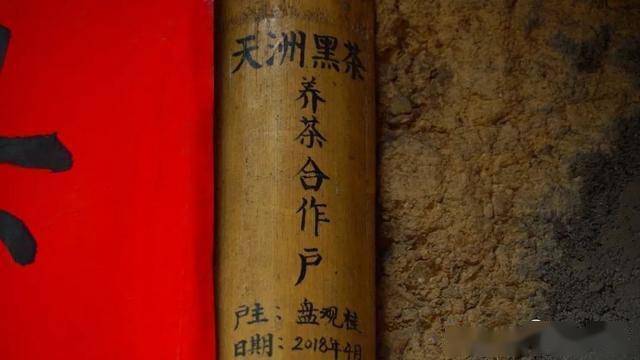 天洲黑茶
养茶合作户
户主：盘观桂
日期：2018年4月